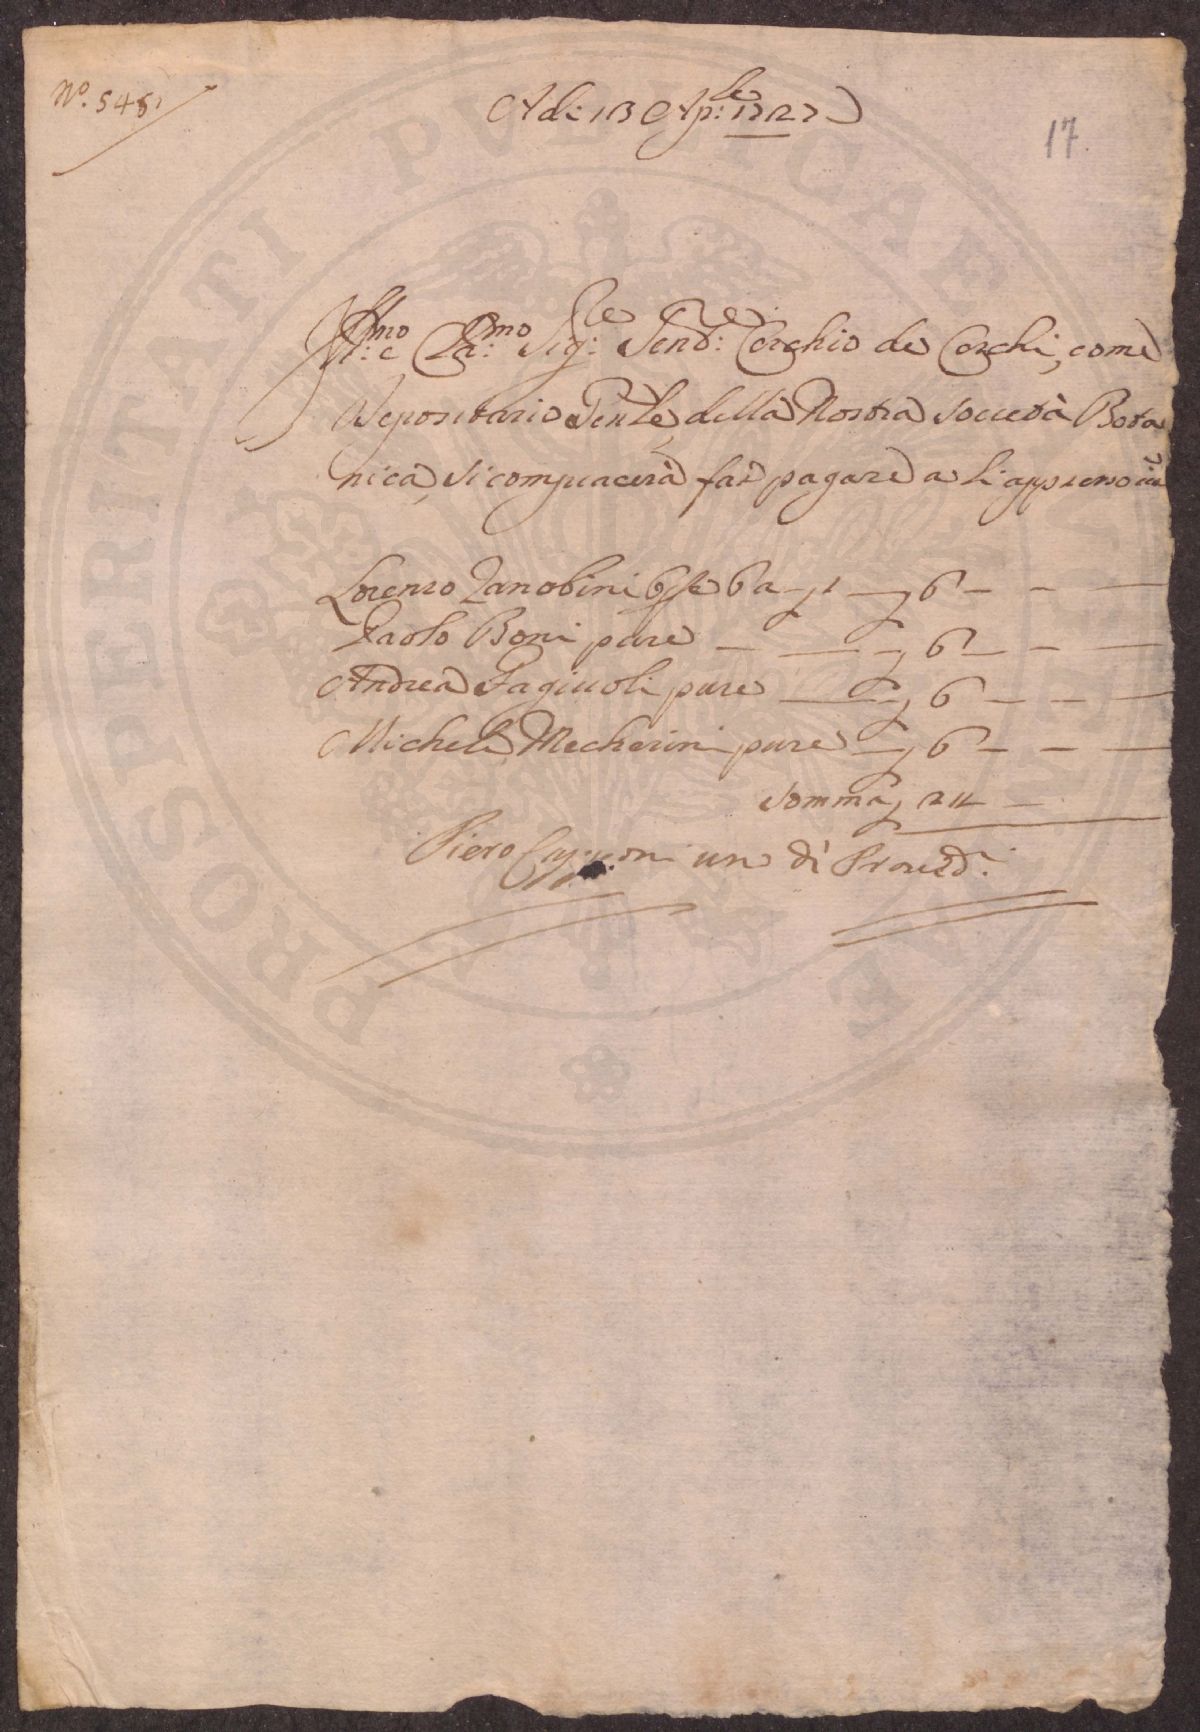 No. 548
Adi: 13 Ap:le 1727
17.
Ill:mo e Cla:mo Sig:re Send:re Cerchio de Cerchi, come
Depositario Pnte, della Nostra Società Bota
nica, si compiacerà far pagare a li appresso
Lorenzo Zanobini 6 a 6
Paolo Boni pure — — 6 — — —
Andrea Fagiuoli pure — 6 — — —
Michele Mecherini pure — 6 — — —
Somma 24 —
Piero un di Proued:i
PROSPERITATI PVBLICAE